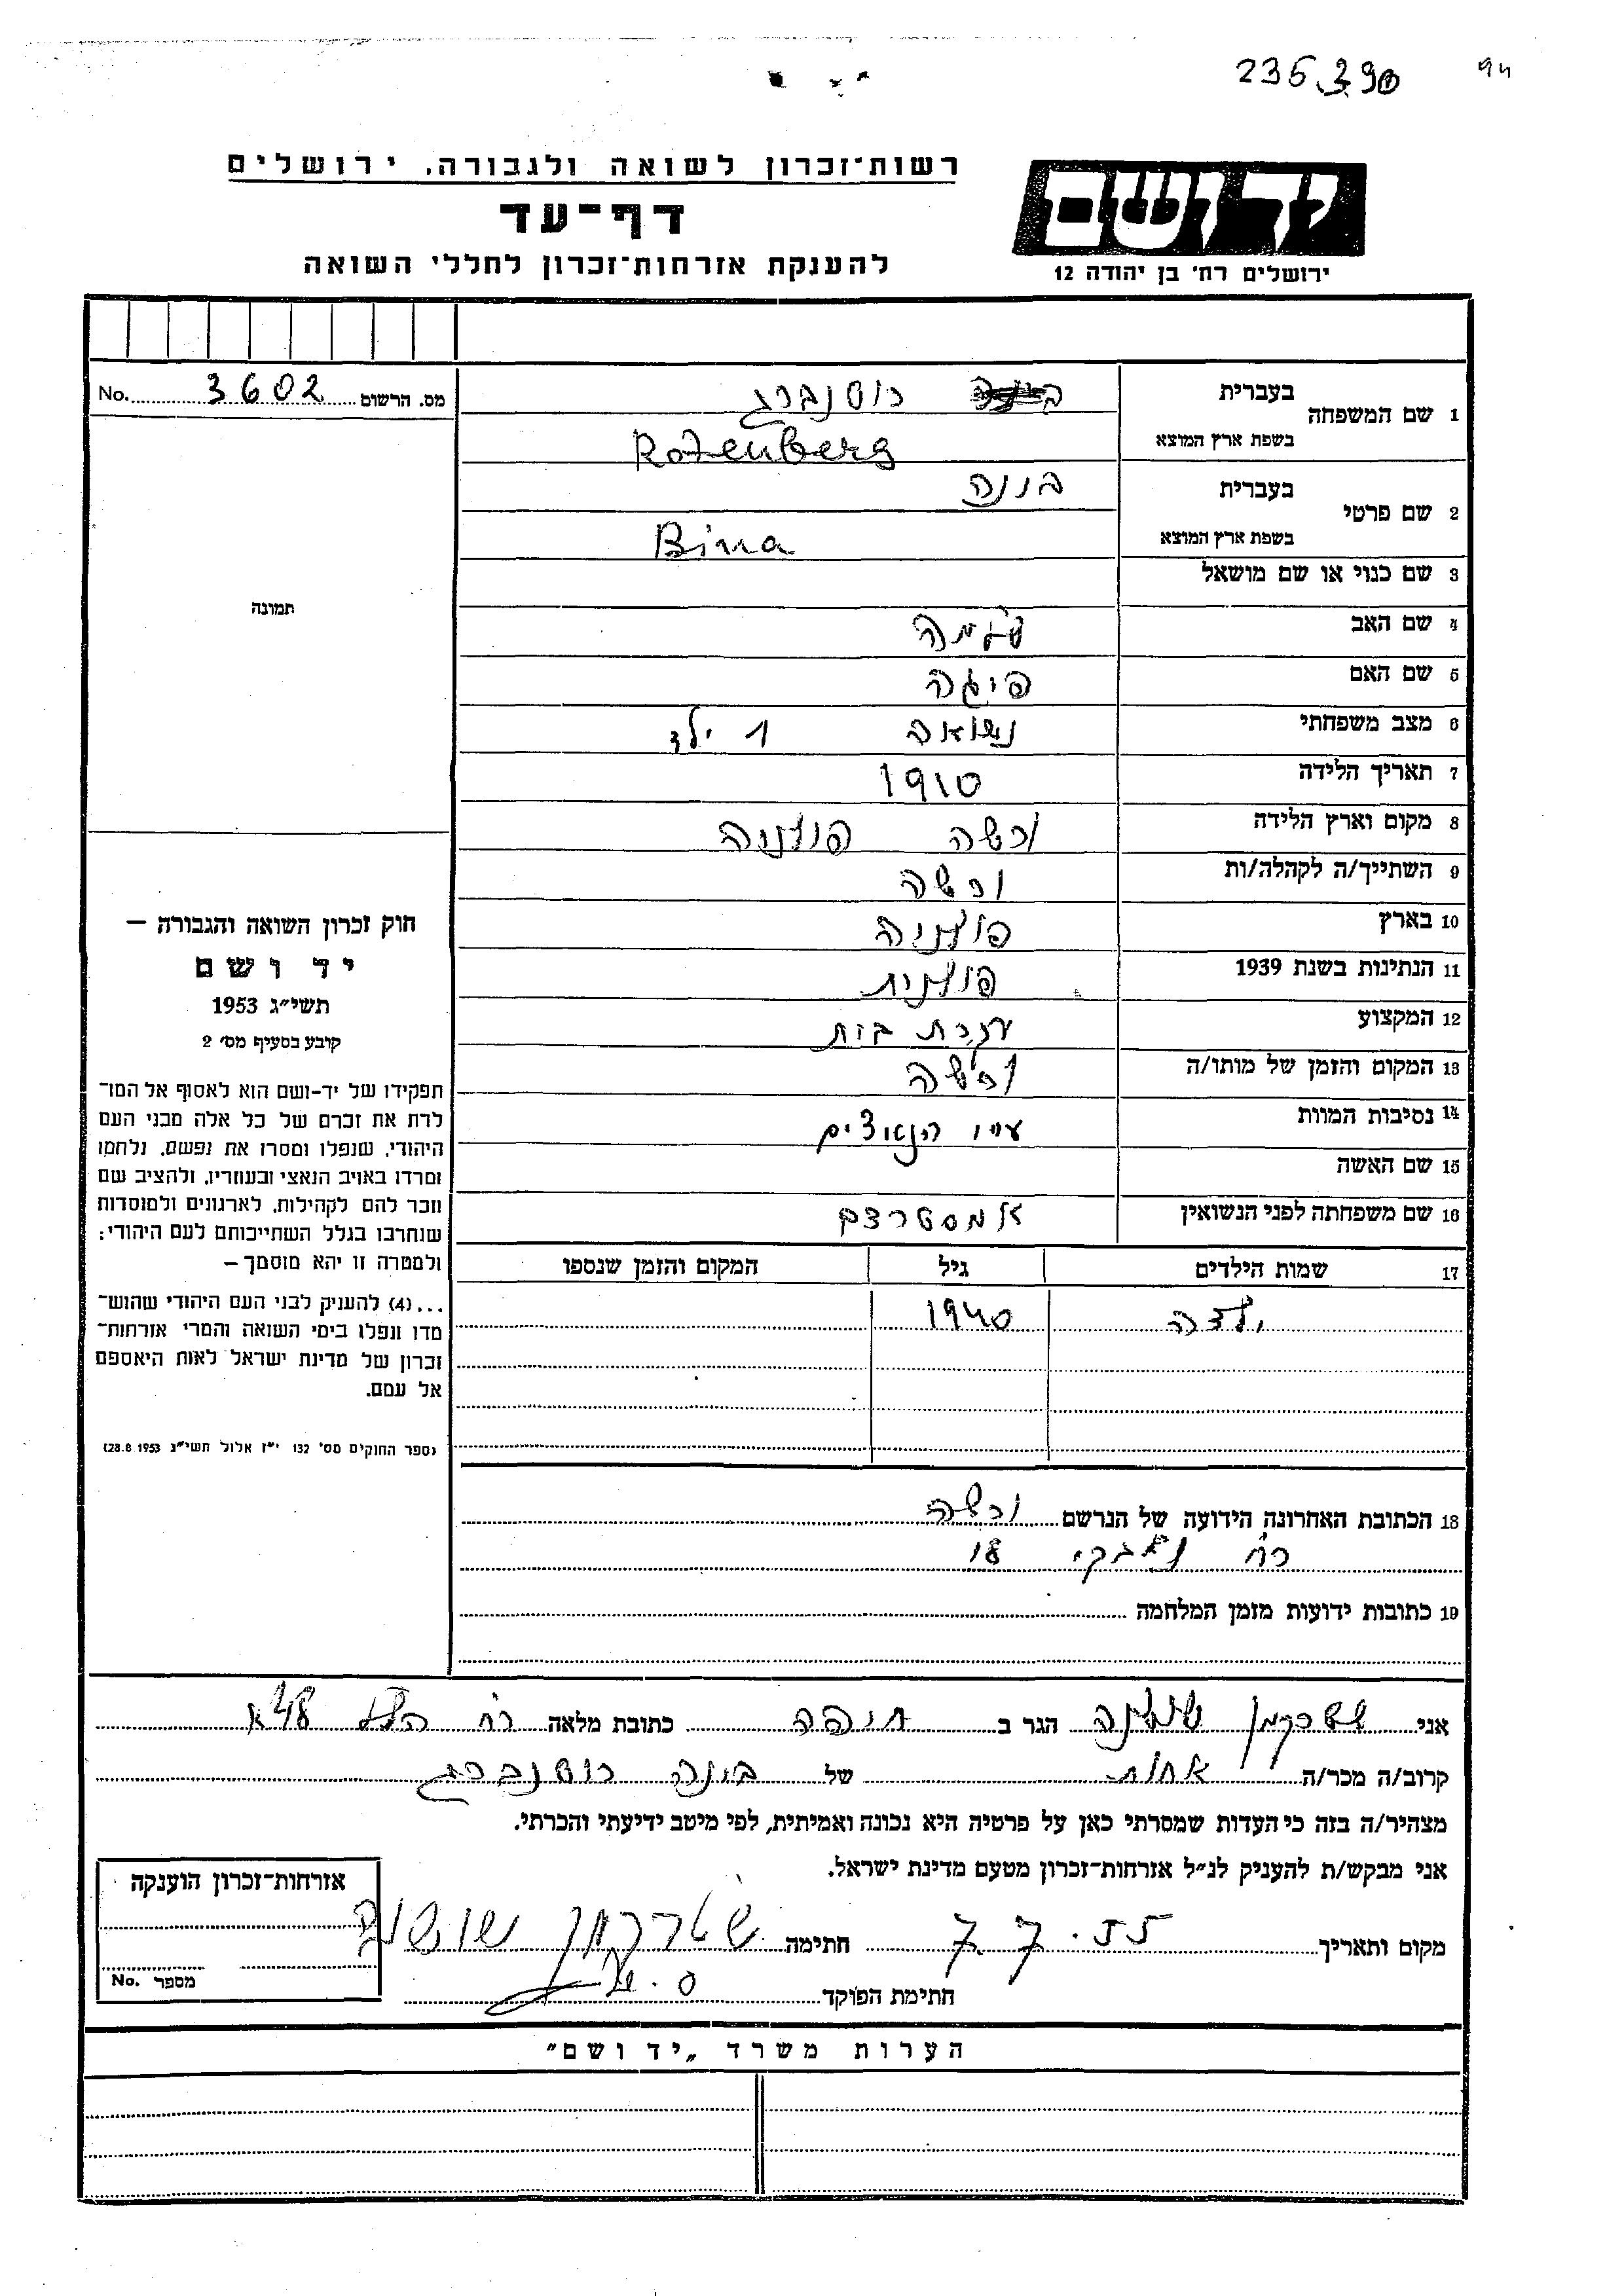 236390 94
רשות־זכרון לשואה ולגבורה, ירושלים
יד ושם
דף־עד
ירושלים רח׳ בן יהודה 12
להענקת אזרחות־זכרון לחללי השואה
מס. הרשום 3602 No.
1 שם המשפחה
בעברית רוטנברג
בשפת ארץ המוצא Rotenberg
2 שם פרטי
בעברית בינה
בשפת ארץ המוצא Bina
3 שם כנוי או שם מושאל
תמונה
4 שם האב שלמה
5 שם האם פיגה
6 מצב משפחתי נשואה 1 ילד
7 תאריך הלידה 1910
8 מקום וארץ הלידה ורשה פולניה
9 השתייך/ה לקהלה/ות ורשה
10 בארץ פולניה
11 הנתינות בשנת 1939 פולנית
12 המקצוע עקרת בית
13 המקום והזמן של מותו/ה ורשה
14 נסיבות המוות ע״י הנאצים
15 שם האשה
16 שם משפחתה לפני הנשואין
17 שמות הילדים גיל המקום והזמן שנספו
ילדה 1940
חוק זכרון השואה והגבורה –
יד ושם
תשי״ג 1953
קובע בסעיף מס׳ 2
תפקידו של יד-ושם הוא לאסוף אל המו־
לדת את זכרם של כל אלה מבני העם
היהודי, שנפלו ומסרו את נפשם, נלחמו
ומרדו באויב הנאצי ובעוזריו, ולהציב שם
וזכר להם לקהילות, לארגונים ולמוסדות
שנחרבו בגלל השתייכותם לעם היהודי;
ולמטרה זו יהא מוסמך –
...(4) להעניק לבני העם היהודי שהוש־
מדו ונפלו בימי השואה והמרי אזרחות־
זכרון של מדינת ישראל לאות היאספם
אל עמם.
(ספר החוקים מס׳ 132 י״ז אלול תשי״ג 28.8.1953)
18 הכתובת האחרונה הידועה של הנרשם ורשה
רח נלבקי 18
19 כתובות ידועות מזמן המלחמה
אני שטרקמן שושנה הגר ב חיפה כתובת מלאה רח
קרוב/ה מכר/ה אחות של בינה רוטנברג
מצהיר/ה בזה כי העדות שמסרתי כאן על פרטיה היא נכונה ואמיתית, לפי מיטב ידיעתי והכרתי.
אני מבקש/ת להעניק לנ״ל אזרחות־זכרון מטעם מדינת ישראל.
מקום ותאריך 7.7.55 חתימה שטרקמן שושנה
חתימת הפוקד
אזרחות־זכרון הוענקה
מספר No.
הערות משרד „יד ושם״